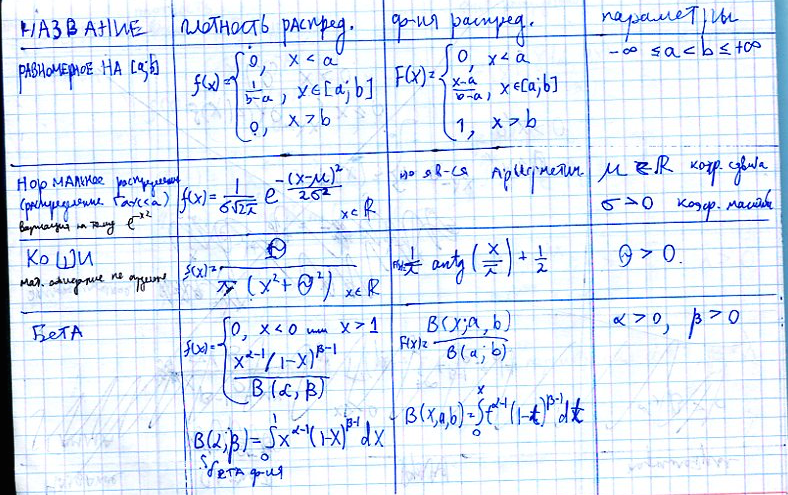 НАЗВАНИЕ
плотность распред.
ф-ия распред.
параметры
РАВНОМЕРНОЕ НА [a;b]
f(x)= { 0, x < a
1/(b-a), x∈[a;b]
0, x > b
F(x)= { 0, x < a
(x-a)/(b-a), x∈[a;b]
1, x > b
-∞ ≤ a < b ≤ +∞
НОРМАЛЬНОЕ распределение
(распределение Гаусса)
вариация на тему e^{-x^2}
f(x)= 1/(σ√2π) e^{-(x-μ)^2/2σ^2} x∈R
не явл-ся
μ ∈ R коэф. сдвига
σ > 0 коэф.
КОШИ
мат. ожидание не
f(x)= θ/(π(x^2+θ^2)) x∈R
arctg (x/λ) + 1/2
θ > 0.
БЕТА
f(x)= { 0, x < 0 или x > 1
x^{α-1}(1-x)^{β-1}/B(α,β)
B(α;β) = ∫_0^1 x^{α-1}(1-x)^{β-1} dx
БЕТА ф-ия
F(x)= B(x;a,b)/B(a;b)
B(x,a,b)=∫_0^x t^{α-1}(1-t)^{β-1} dt
α > 0, β > 0